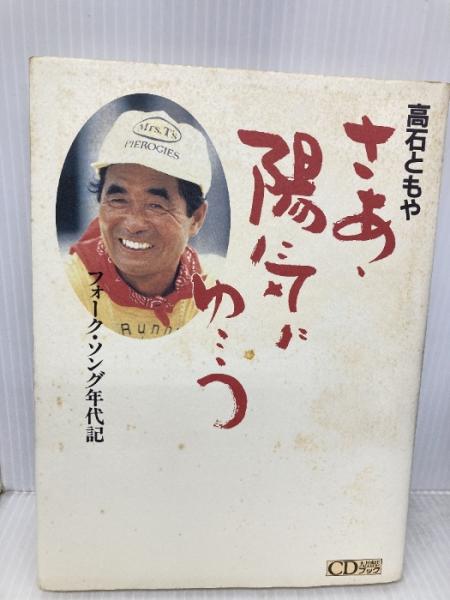 高石ともや
さあ、
陽気に
ゆこう
フォーク・ソング年代記
Mrs.T's
PIEROGIES
Runn
CD
ブック